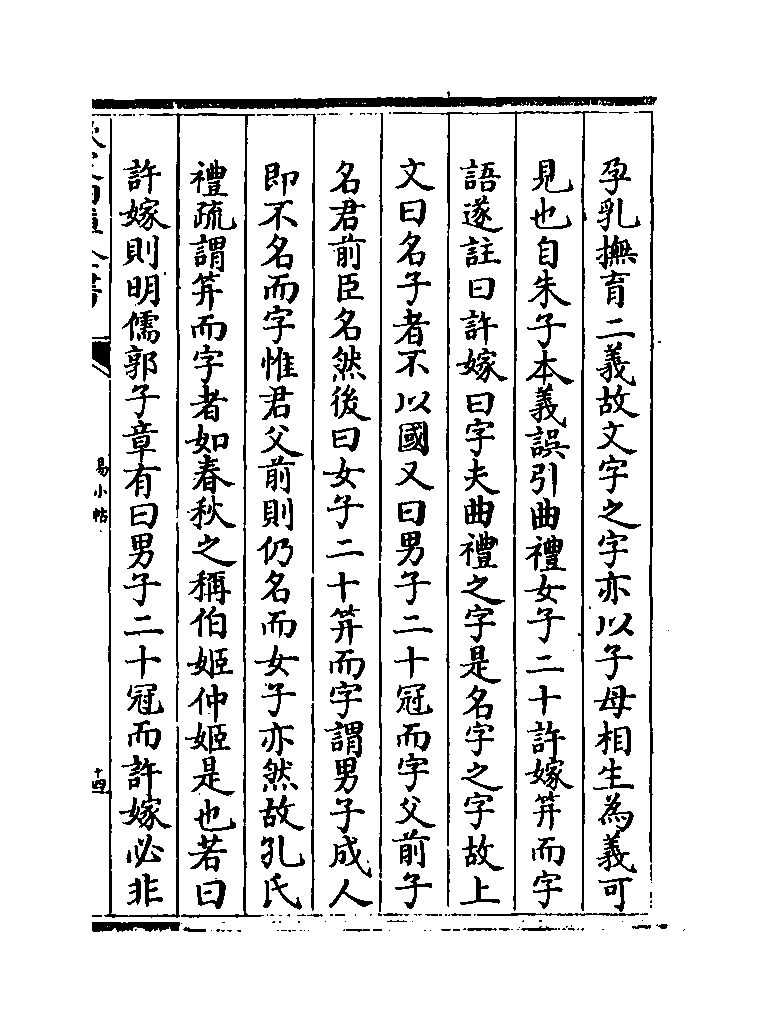 孕乳撫育二義故文字之字亦以子母相生為義可
見也自朱子本義誤引曲禮女子二十許嫁笄而字
語遂註曰許嫁曰字夫曲禮之字是名字之字故上
文曰名子者不以國又曰男子二十冠而字父前子
名君前臣名然後曰女子二十笄而字謂男子成人
即不名而字惟君父前則仍名而女子亦然故孔氏
禮疏謂笄而字者如春秋之稱伯姬仲姬是也若曰
許嫁則明儒郭子章有曰男子二十冠而許嫁必非
易小帖
十四